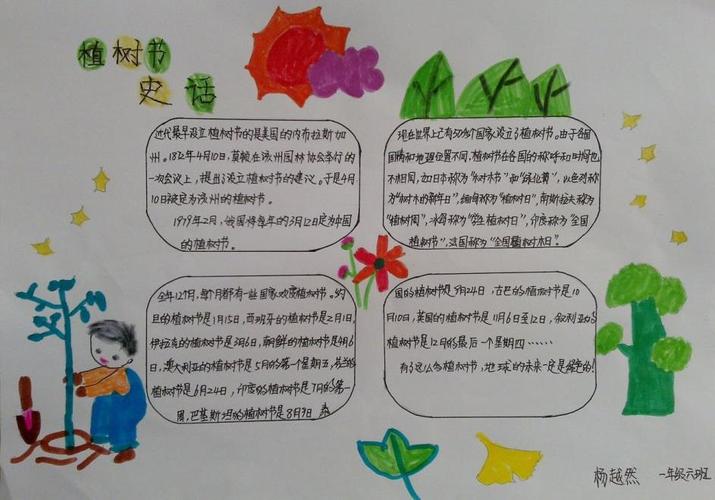 植树节
史话
近代最早设立植树节的是美国的内布拉斯加
州。1872年4月10日,莫顿在该州园林协会举行的
一次会议上,提出了设立植树节的建议。于是4月
10日被定为该州的植树节。
1979年2月,我国将每年的3月12日定为中国
的植树节。
现在世界上已有50多个国家设立了植树节。由于各国
国情和地理位置不同,植树节在各国的称呼和时间也
不相同,如日本称为“树木节”和“绿化周”,以色列称
为“树木的新年日”,缅甸称为“植树月”,南斯拉夫称为
“植树周”,冰岛称为“学生植树日”,印度称为“全国
植树节”,法国称为“全国植树木日”。
全年12个月,每个月都有一些国家欢度植树节。约
旦的植树节是1月15日,西班牙的植树节是2月1日,
伊拉克的植树节是3月6日,朝鲜的植树节是4月6
日,澳大利亚的植树节是5月的第一个星期五,芬兰的
植树节是6月24日,印度的植树节是7月的第一
周,巴基斯坦的植树节是8月9日 泰
国的植树节是9月24日,古巴的植树节是10
月10日,英国的植树节是11月6日至12日,叙利亚的
植树节是12月的最后一个星期四……
有了这么多植树节,地球的未来一定是绿色的!
杨越然 一年级六班